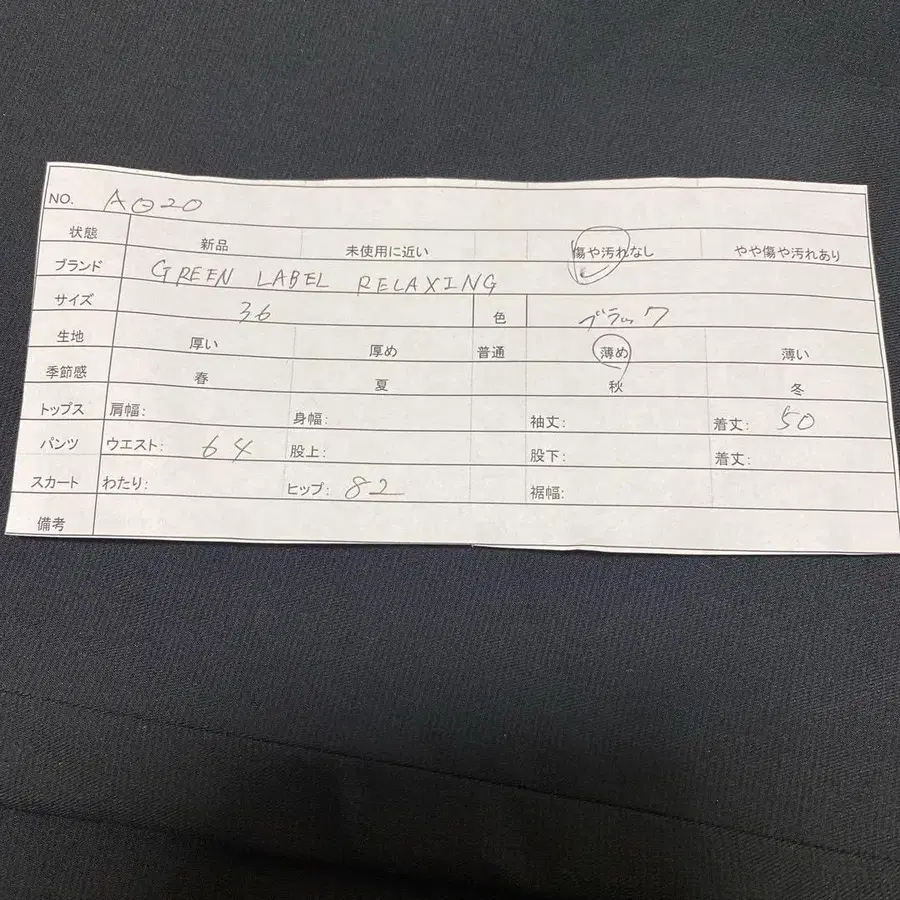 NO. A020
状態 新品 未使用に近い 傷や汚れなし やや傷や汚れあり
ブランド GREEN LABEL RELAXING
サイズ 36 色 ブラック
生地 厚い 厚め 普通 薄め 薄い
季節感 春 夏 秋 冬
トップス 肩幅: 身幅: 袖丈: 着丈: 50
パンツ ウエスト: 64 股上: 股下: 着丈:
スカート わたり: ヒップ: 82 裾幅:
備考